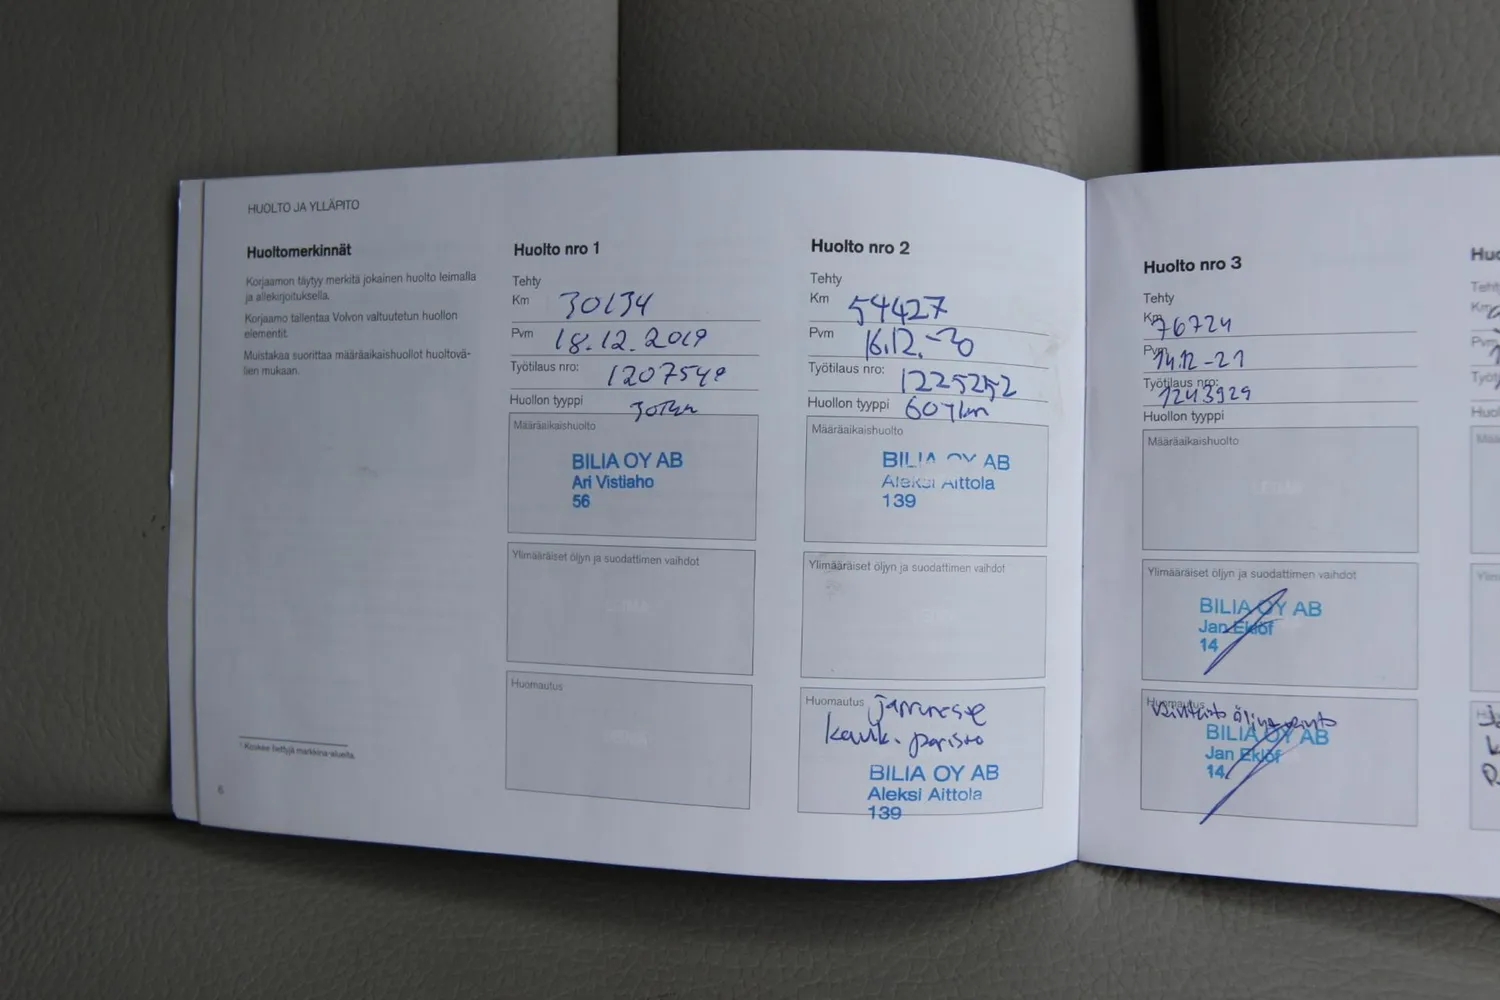 HUOLTO JA YLLÄPITO
Huoltomerkinnät
Korjaamon täytyy merkitä jokainen huolto leimalla
ja allekirjoituksella.
Korjaamo tallentaa Volvon valtuutetun huollon
elementit.
Muistakaa suorittaa määräaikaishuollot huoltovä-
lien mukaan.
¹ Koskee tiettyjä markkina-alueita.
6
Huolto nro 1
Tehty
Km 30134
Pvm 18.12.2019
Työtilaus nro: 1207549
Huollon tyyppi
Määräaikaishuolto
BILIA OY AB
Ari Vistiaho
56
Ylimääräiset öljyn ja suodattimen vaihdot
Huomautus
Huolto nro 2
Tehty
Km 54427
Pvm 16.12.-20
Työtilaus nro: 1225252
Huollon tyyppi 60tkm
Määräaikaishuolto
BILIA OY AB
Aleksi Aittola
139
Ylimääräiset öljyn ja suodattimen vaihdot
Huomautus jarruneste
kauk. paristo
BILIA OY AB
Aleksi Aittola
139
Huolto nro 3
Tehty
Km 76724
Pvm 14.12-21
Työtilaus nro:
1243929
Huollon tyyppi
Määräaikaishuolto
Ylimääräiset öljyn ja suodattimen vaihdot
BILIA OY AB
Jan Eklöf
14
Huomautus
BILIA OY AB
Jan Eklöf
14